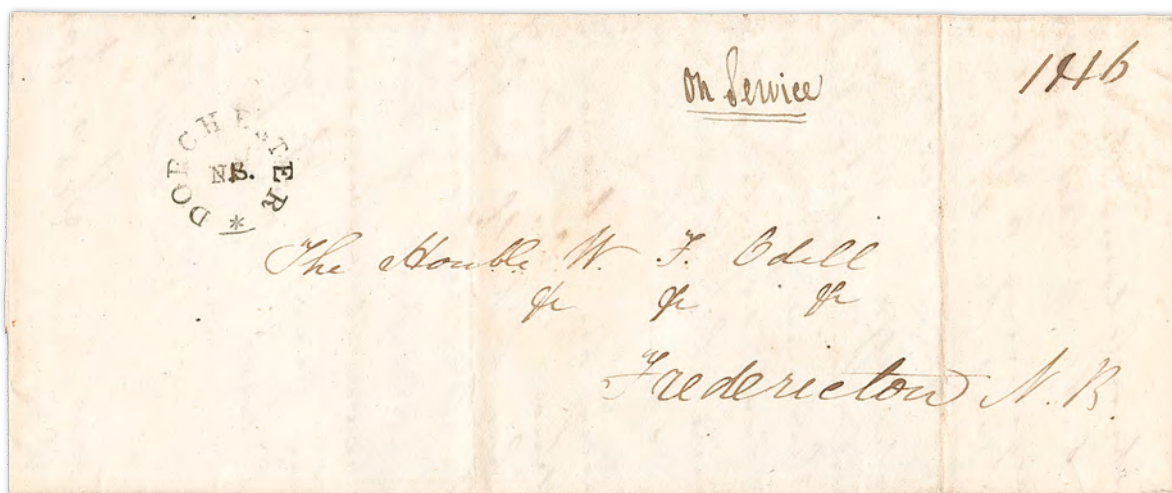 on Service
1846
DORCHESTER *
N.B.
The Honble. W. F. Odell
&c &c &c
Fredericton N. B.